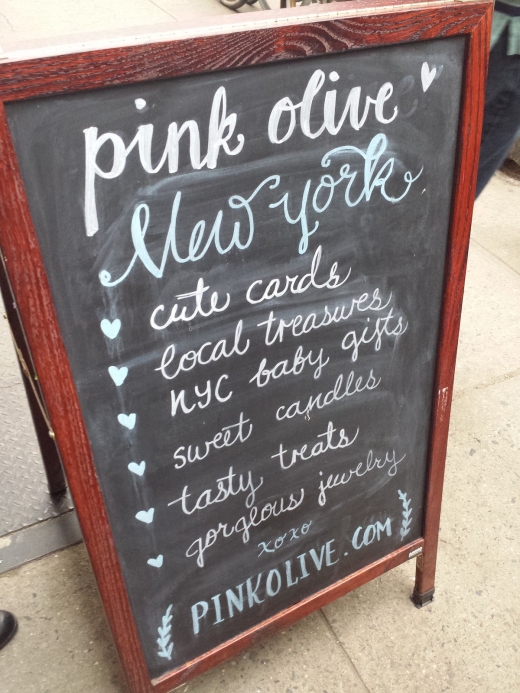 pink olive
New York
cute cards
local treasures
NYC baby gifts
sweet candles
tasty treats
gorgeous jewelry
xoxo
PINKOLIVE.COM